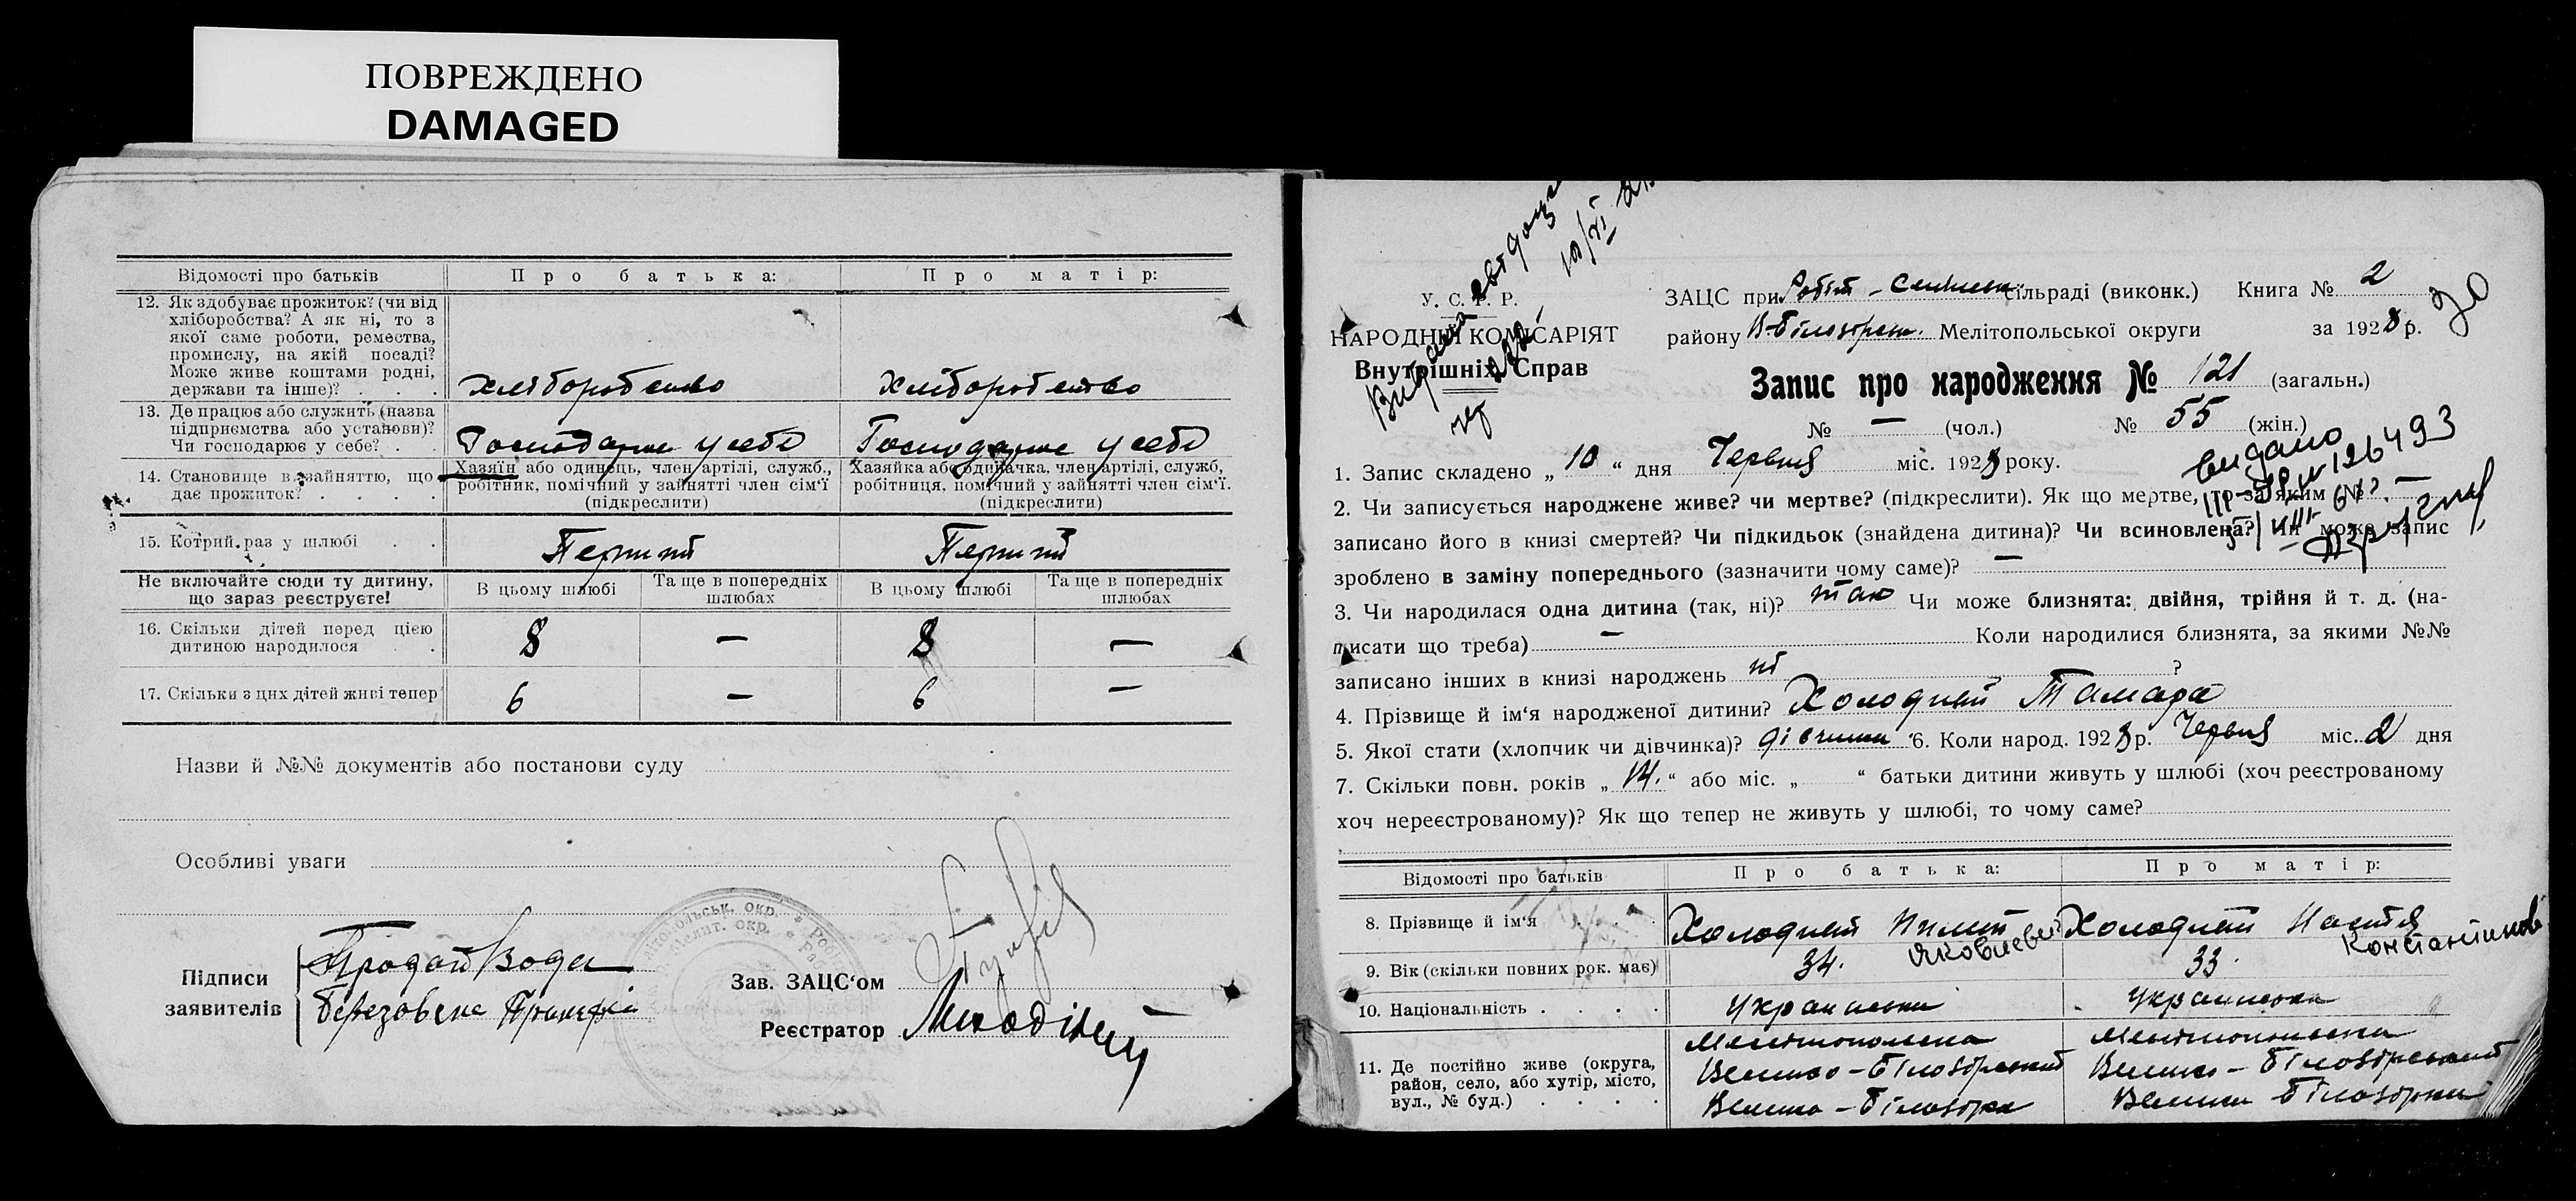 ПОВРЕЖДЕНО
DAMAGED
Відомості про батьків
Про батька:
Про матір:
12. Як здобуває прожиток? (чи від
хліборобства? А як ні, то з
якої саме роботи, ремества,
промислу, на якій посаді?
Може живе коштами родні,
держави та інше)? . . .
хліборобство
хліборобство
13. Де працює або служить (назва
підприємства або установи)?
Чи господарює у себе? . .
Господарює у себе
Господарює у себе
14. Становище в зайняттю, що
дає прожиток? . . . .
Хазяїн або одинець, член артілі, служб.,
робітник, помічний у зайнятті член сім'ї
(підкреслити)
Хазяйка або одиначка, член артілі, служб,
робітниця, помічний у зайнятті член сім'ї.
(підкреслити)
15. Котрий раз у шлюбі . .
Перший
Перший
Не включайте сюди ту дитину,
що зараз реєструєте!
В цьому шлюбі
Та ще в попередніх
шлюбах
В цьому шлюбі
Та ще в попередніх
шлюбах
16. Скільки дітей перед цією
дитиною народилося . .
8 — 8 —
17. Скільки з цих дітей живі тепер
6 — 6 —
Назви й №№ документів або постанови суду
Особливі уваги
Підписи
заявителів
Продайвода
Березовська
Зав. ЗАЦС'ом
Реєстратор
У. С. Р. Р.
НАРОДНІЙ КОМІСАРІЯТ
Внутрішніх Справ
ЗАЦС при сільраді (виконк.) Книга № 2
30
району В-Білозірськ. Мелітопольської округи за 1928 р.
Запис про народження № 121 (загальн.)
№ — (чол.) № 55 (жін.)
видано
126493
1. Запис складено „ 10 “ дня Червня міс. 1928 року.
2. Чи записується народжене живе? чи мертве? (підкреслити). Як що мертве, то за яким №
записано його в книзі смертей? Чи підкидьок (знайдена дитина)? Чи всиновлена? Чи може запис
зроблено в заміну попереднього (зазначити чому саме)? —
3. Чи народилася одна дитина (так, ні)? так Чи може близнята: двійня, трійня й т. д. (на-
писати що треба) — Коли народилися близнята, за якими №№
записано інших в книзі народжень ні ?
4. Прізвище й ім'я народженої дитини? Холодний Тамара
5. Якої стати (хлопчик чи дівчинка)? дівчинки 6. Коли народ. 1928 р. Червня міс. 2 дня
7. Скільки повн. років „ 14. “ або міс. „ “ батьки дитини живуть у шлюбі (хоч реєстрованому
хоч нереєстрованому)? Як що тепер не живуть у шлюбі, то чому саме?
Відомості про батьків
Про батька:
Про матір:
8. Прізвище й ім'я . . . .
Холодний Пилип
Яковлевич
Холодний Настя
Константинов
9. Вік (скільки повних рок. має)
34.
33.
10. Національність . . . .
Українська
Українська
11. Де постійно живе (округа,
район, село, або хутір, місто,
вул., № буд.) . . . .
Мелітопольська
Велико-Білозірський
Велика-Білозірка
Мелітопольська
Велико-Білозірський
Велика Білозірка